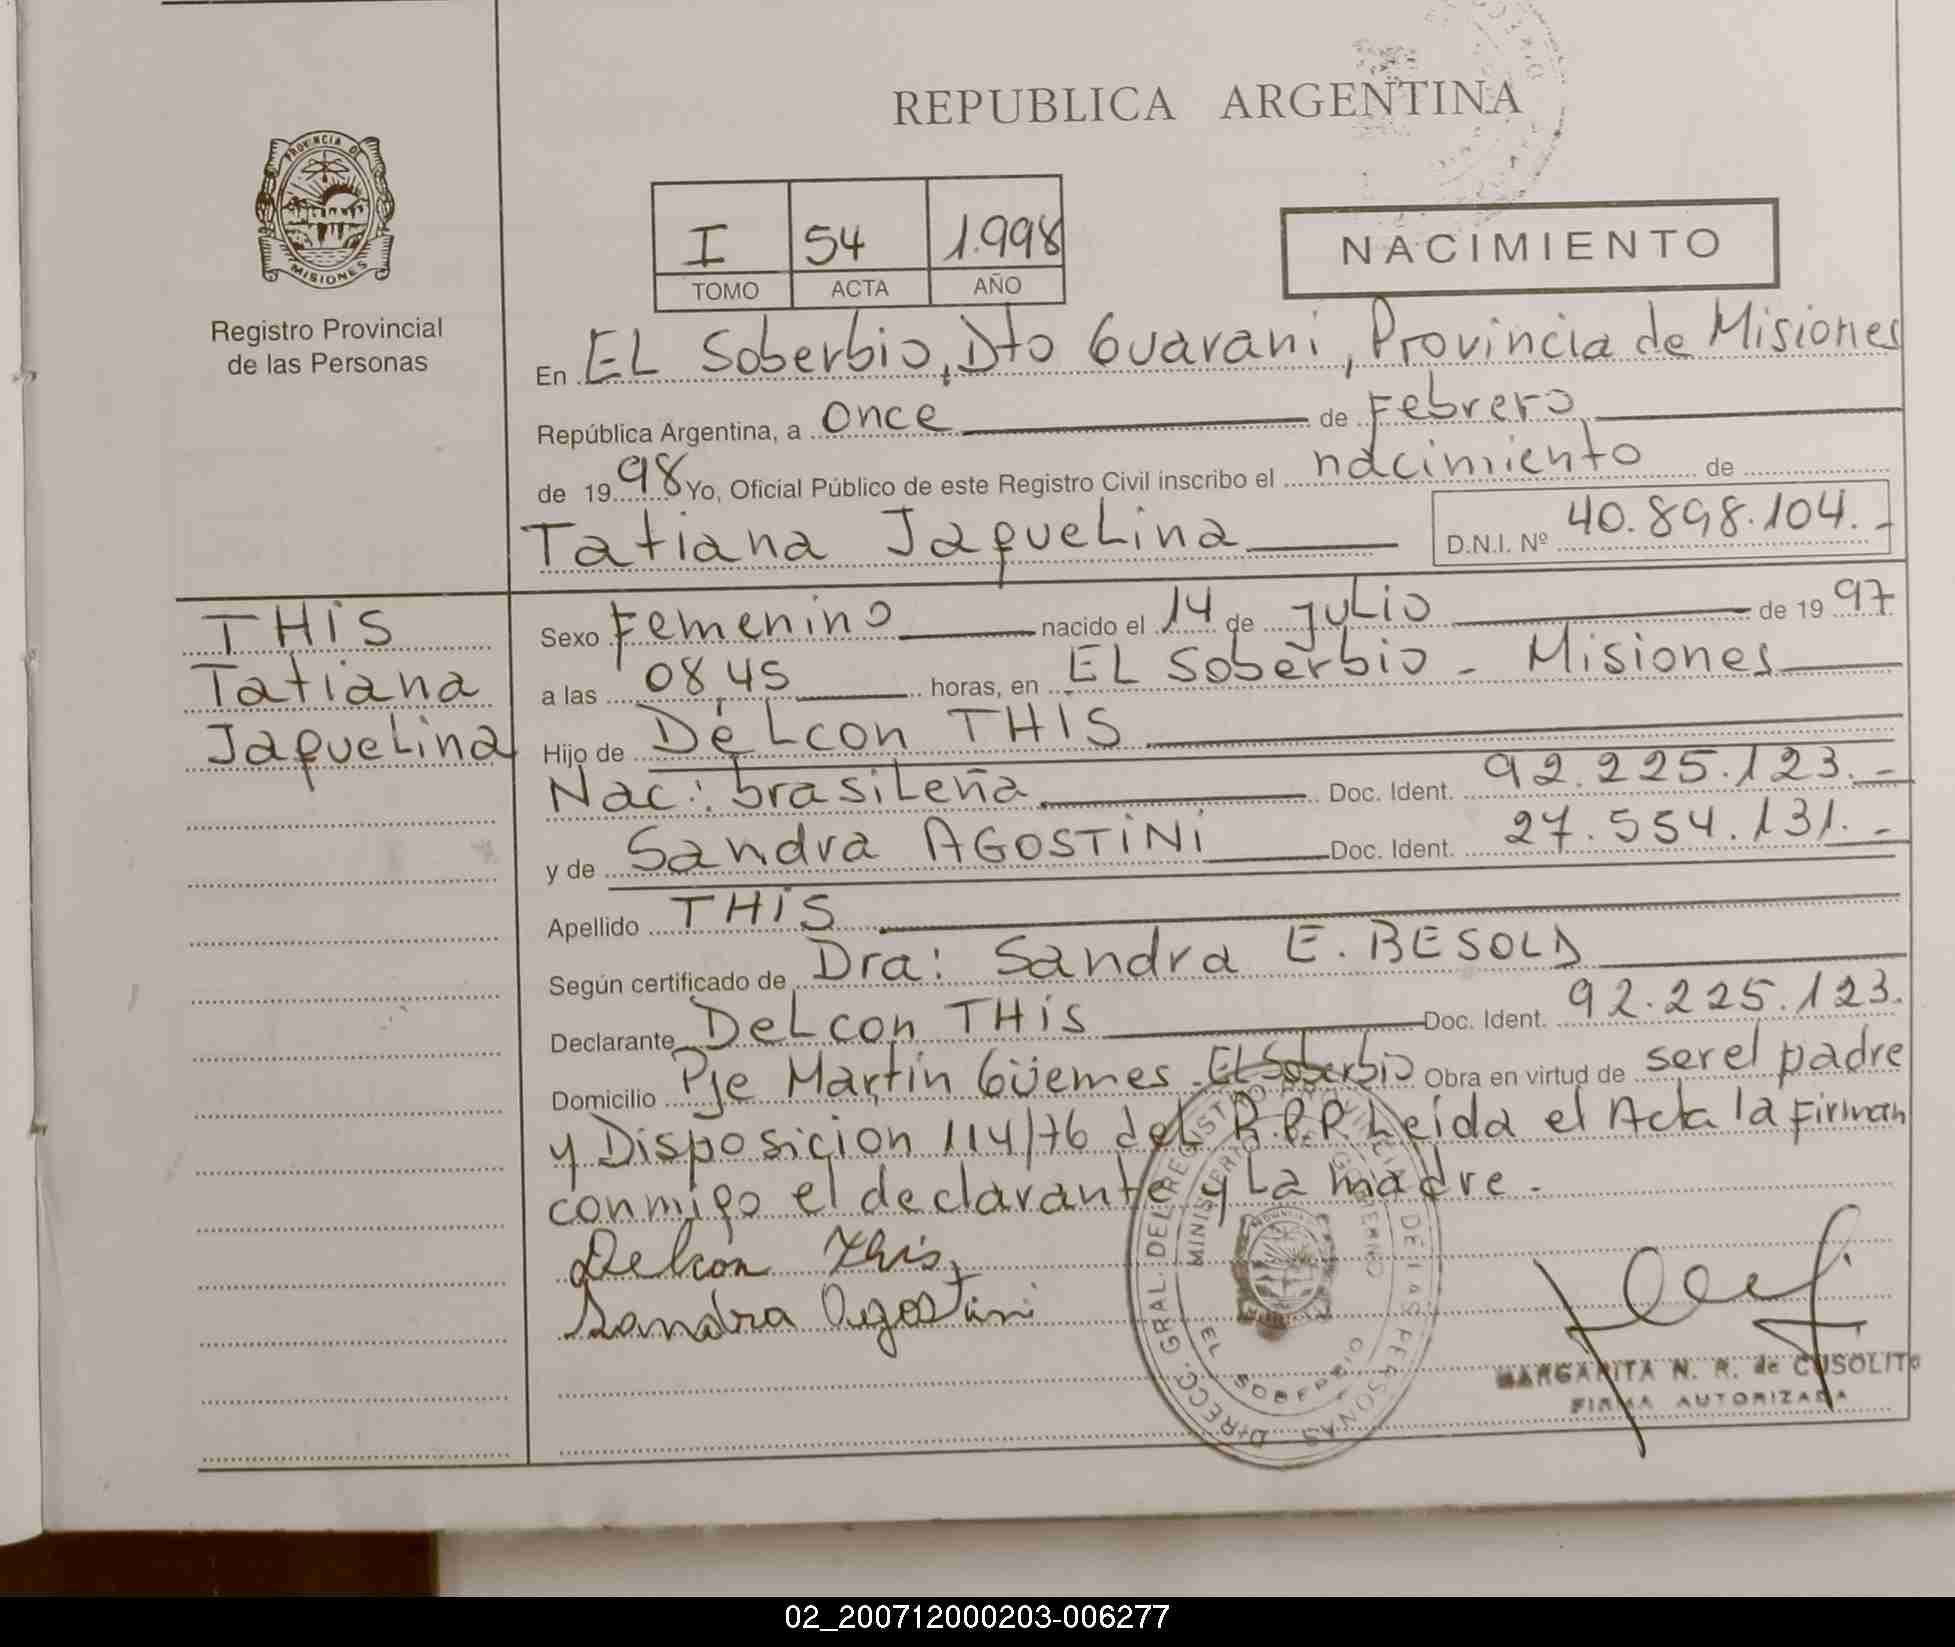 REPUBLICA ARGENTINA
PROVINCIA DE
MISIONES
Registro Provincial
de las Personas
I 54 1.998
TOMO ACTA AÑO
NACIMIENTO
En EL Soberbio, Dto Guarani, Provincia de Misiones
República Argentina, a once de Febrero
de 1998 Yo, Oficial Público de este Registro Civil inscribo el nacimiento de
Tatiana JaqueLina D.N.I. Nº 40.898.104.-
THiS
Tatiana
JaqueLina
Sexo Femenino nacido el 14 de juLio de 1997
a las 08,45 horas, en EL Soberbio - Misiones
Hijo de DeLcon THIS
Nac: brasiLeña Doc. Ident. 92.225.123.-
y de Sandra AGOSTiNi Doc. Ident. 27.554.131.-
Apellido THiS
Según certificado de Dra: Sandra E. BESOLD
Declarante DeLcon THiS Doc. Ident. 92.225.123.
Domicilio Pje Martín Güemes - EL Soberbio Obra en virtud de ser el padre
y Disposicion 114/76 deL R.P.P. Leida el Acta la Firman
conmigo el declarante y La madre.-
Delcon This
Sandra Agostini
DIRECC. GRAL. DEL REGISTRO PROVINCIAL DE LAS PERSONAS
MINISTERIO DE GOBIERNO
EL SOBERBIO
MARGARITA N. R. de CUSOLITO
FIRMA AUTORIZADA
02_200712000203-006277